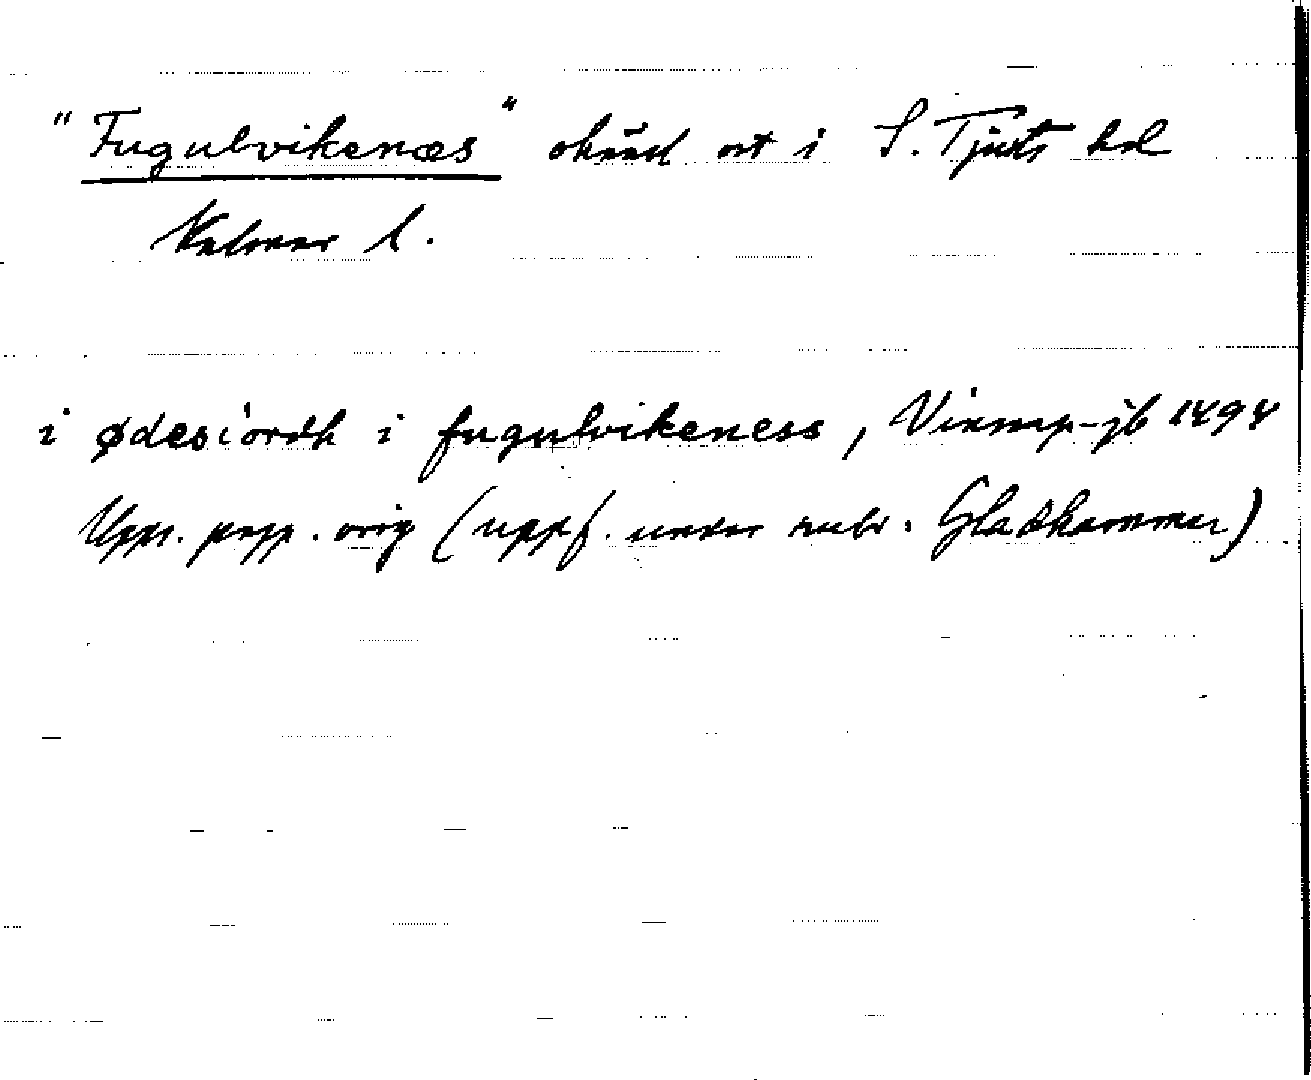 "Fugulvikenæs" okänd ort i S. Tjusts hd
Kalmar l.
i ødesiordh i fugulvikeness, Vinsarp-jb 1494
Upps. papp. orig (uppf. under rubr: Gladhammar)